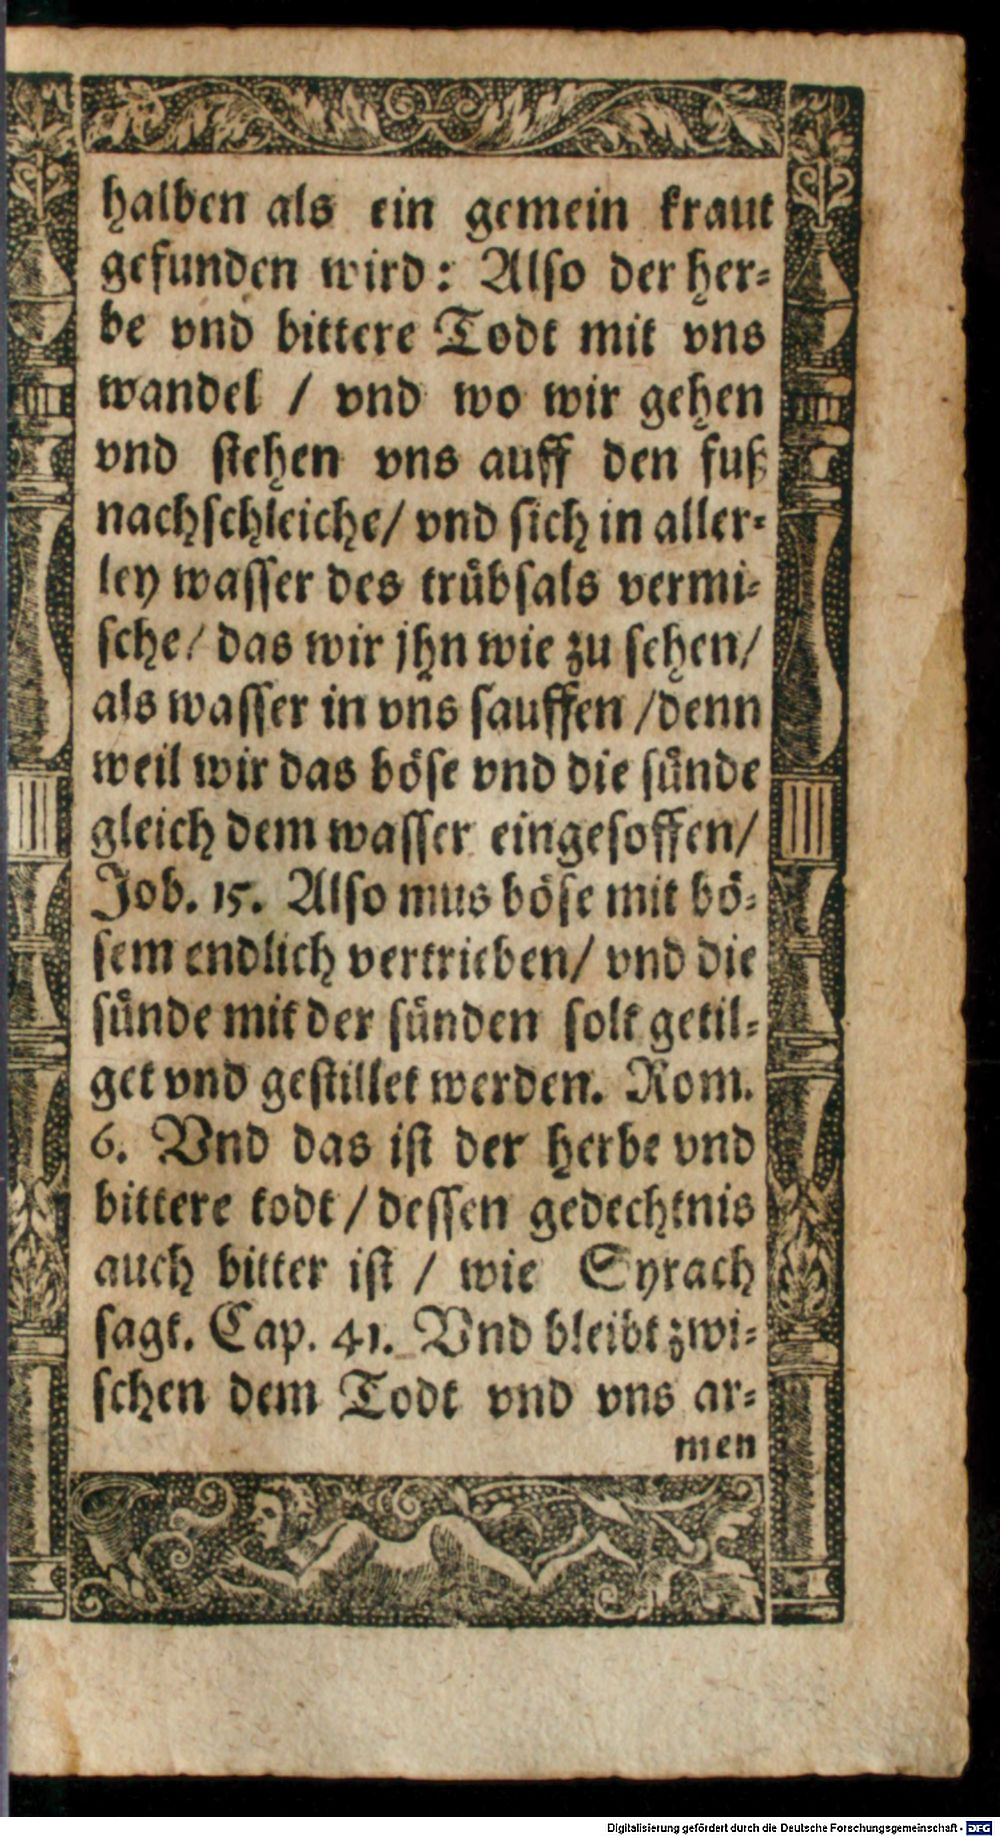 halben als ein gemein kraut
gefunden wird: Also der her-
be vnd bittere Todt mit vns
wandel / vnd wo wir gehen
vnd stehen vns auff den fuß
nachschleiche/ vnd sich in aller-
ley wasser des trübsals vermi-
sche/ das wir jhn wie zu sehen/
als wasser in vns sauffen /denn
weil wir das böse vnd die sünde
gleich dem wasser eingesoffen/
Job. 15. Also mus böse mit bö-
sem endlich vertrieben/ vnd die
sünde mit der sünden solt getil-
get vnd gestillet werden. Rom.
6. Vnd das ist der herbe vnd
bittere todt / dessen gedechtnis
auch bitter ist / wie Syrach
sagt. Cap. 41. Vnd bleibt zwi-
schen dem Todt vnd vns ar-
men
Digitalisierung gefördert durch die Deutsche Forschungsgemeinschaft - DFG